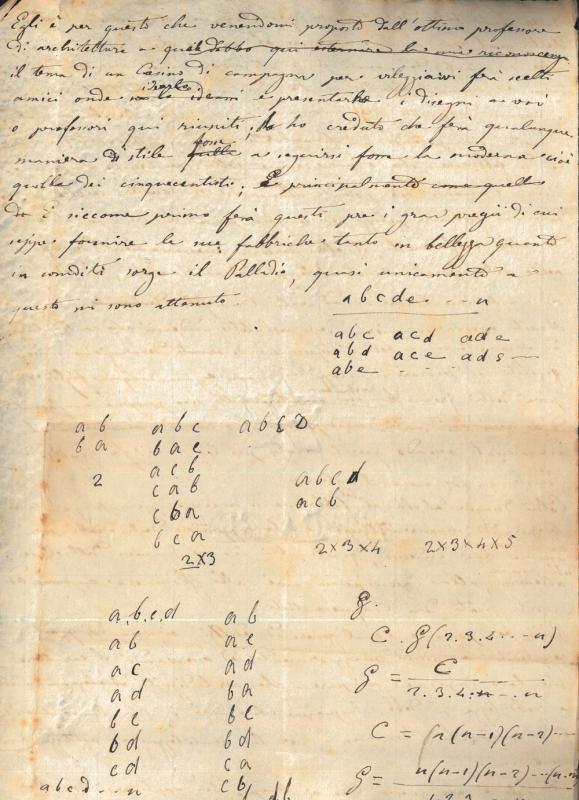 Egli è per questo che venendomi proposto dall'ottimo professore
di architettura a quale debbo qui esternare la mia riconoscenza
il tema di un Casino di campagna per vileggiarvi frà scelti
amici onde idearlo e presentarne i disegni a voi
o professori qui riuniti, ho creduto che frà qualunque
maniera di stile possa a seguirsi fosse la moderna cioè
quella dei cinquecentisti. E principalmente come quell
do E siccome primo frà questi pre i gran pregii di cui
seppe fornire le sue fabbriche tanto in bellezza quanto
in comodità sorge il Palladio, quasi unicamente a
questo mi sono attenuto.
a b c d e . . . n
abc acd ade
abd ace ads
abe . . . .
ab abc abcD
ba bac
acb
2 cab abcd
cba acb
bca
2x3 2x3x4 2x3x4x5
a.b.c.d ab
ab ac
ac ad
ad ba
bc bc
bd bd
cd ca
abcd...n cb
C = n(n-1)(n-2)...